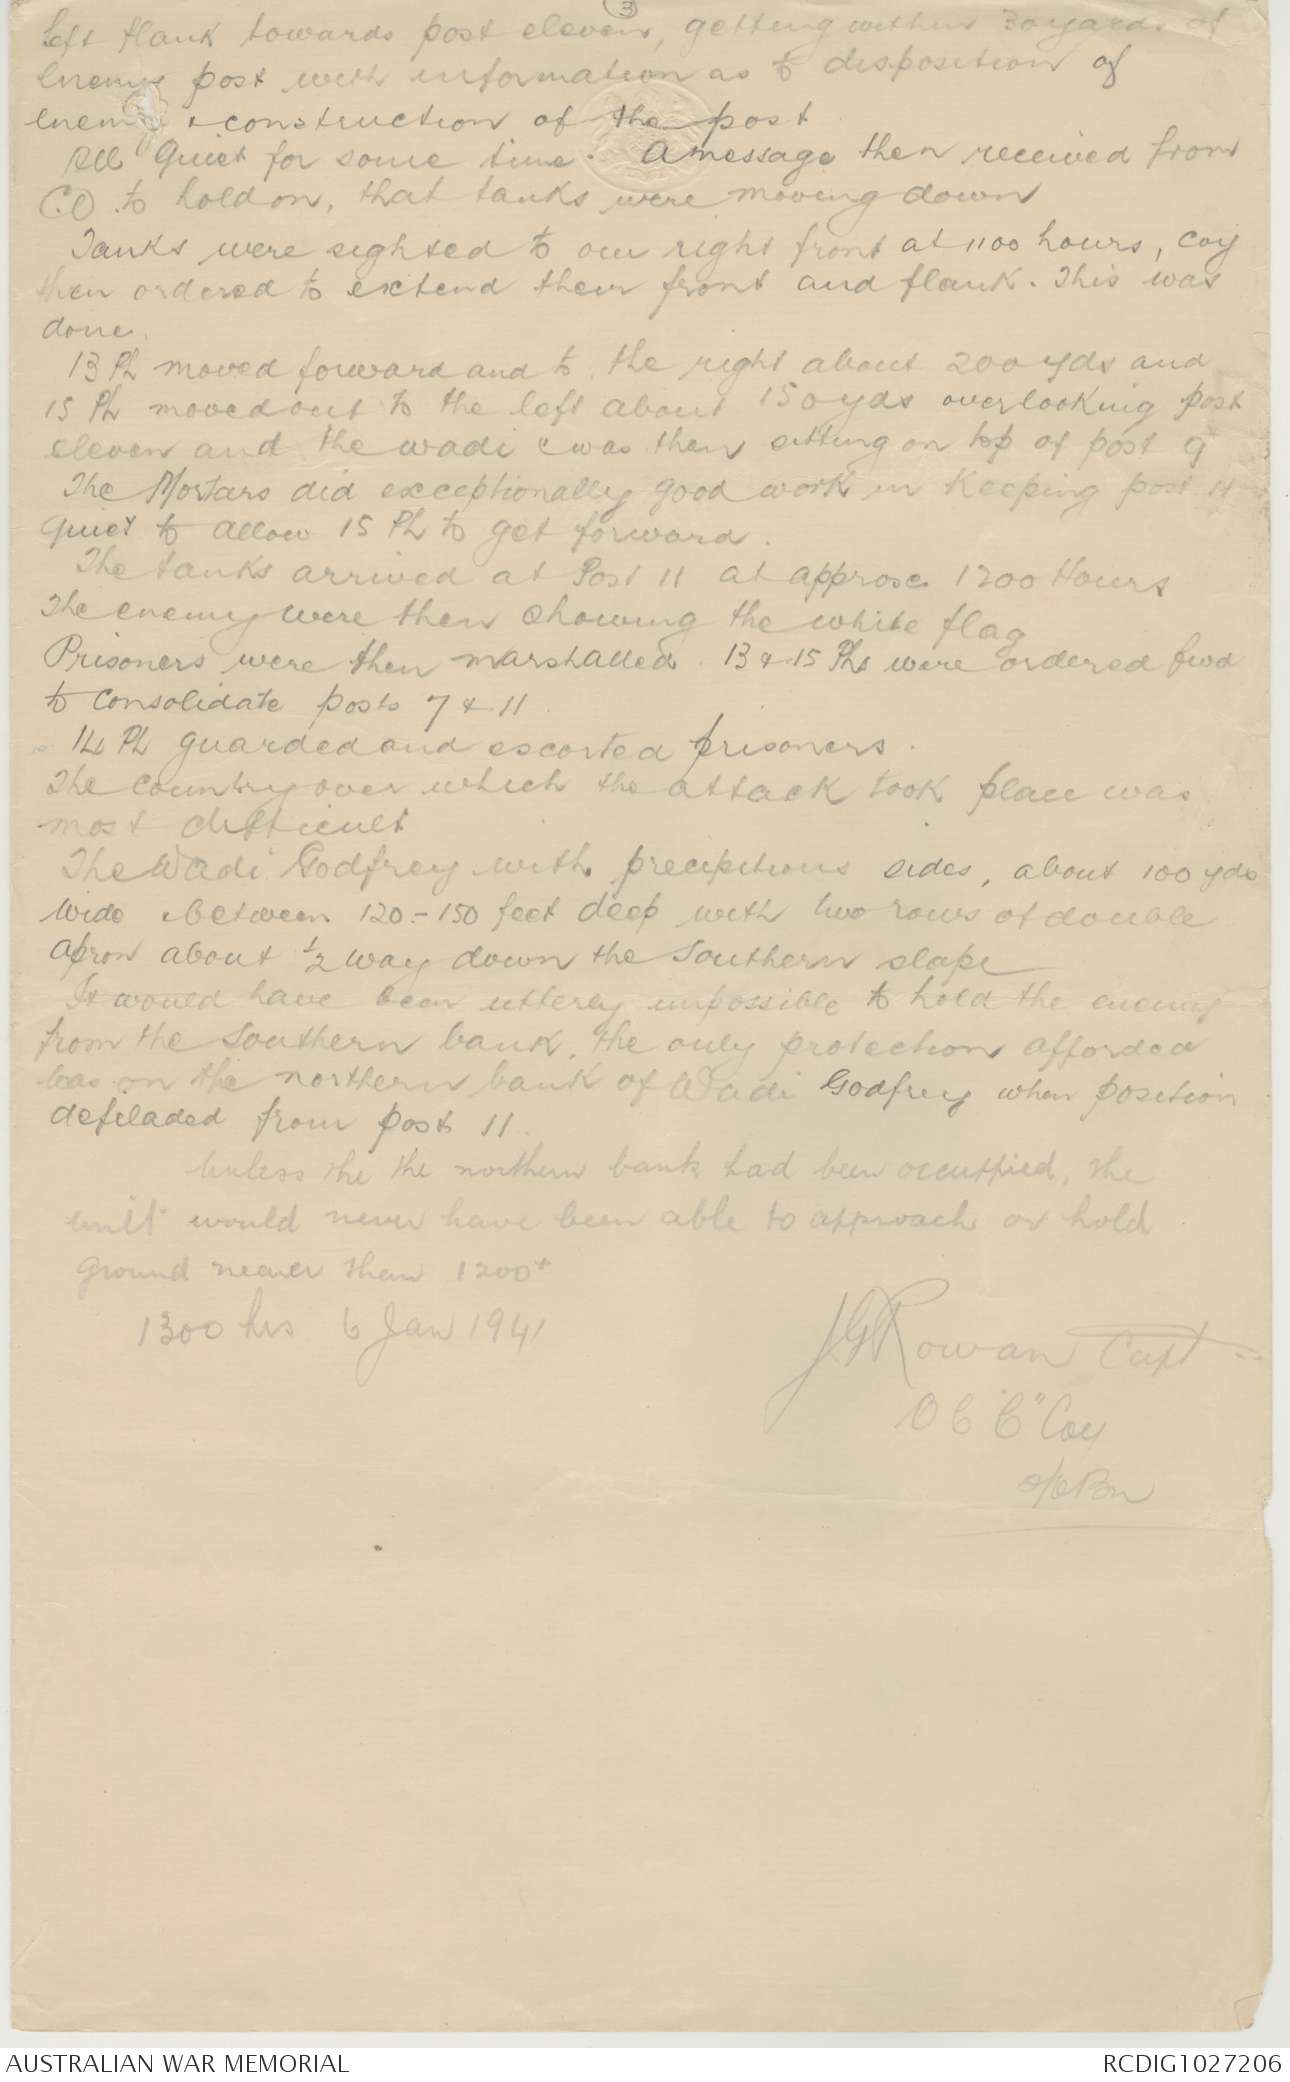 3
left flank towards post eleven, getting within 30 yards of
Enemy post with information as to disposition of
enemy & construction of the post.
All Quiet for some time. A message then received from
C.O. to hold on, that tanks were moving down
Tanks were sighted to our right front at 1100 hours, coy
then ordered to extend their front and flank. This was
done.
13 Pl moved forward and to the right about 200 yds and
15 Pl moved out to the left about 150 yds overlooking post
eleven and the wadi & was then sitting on top of post 9
The Mortars did exceptionally good work in keeping post 11
Quiet to allow 15 Pl to get forward.
The tanks arrived at Post 11 at approx 1200 Hours
The enemy were then showing the white flag
Prisoners were then marshalled. 13 & 15 Pls were ordered fwd
to consolidate posts 7 & 11.
14 Pl guarded and escorted prisoners.
The country over which the attack took place was
most difficult
The Wadi Godfrey with precipitious sides, about 100 yds
wide & between 120-150 feet deep with two rows of double
apron about ½ way down the Southern slope
It would have been utterly impossible to hold the enemy
from the Southern bank, the only protection afforded
was on the northern bank of Wadi Godfrey when position
defiladed from post 11.
Unless the the northern bank had been occuppied, the
unit would never have been able to approach or hold
ground nearer than 1200ˣ
1300 hrs 6 Jan 1941
JGRowan Capt
OC "C" Coy
Bn
AUSTRALIAN WAR MEMORIAL
RCDIG1027206